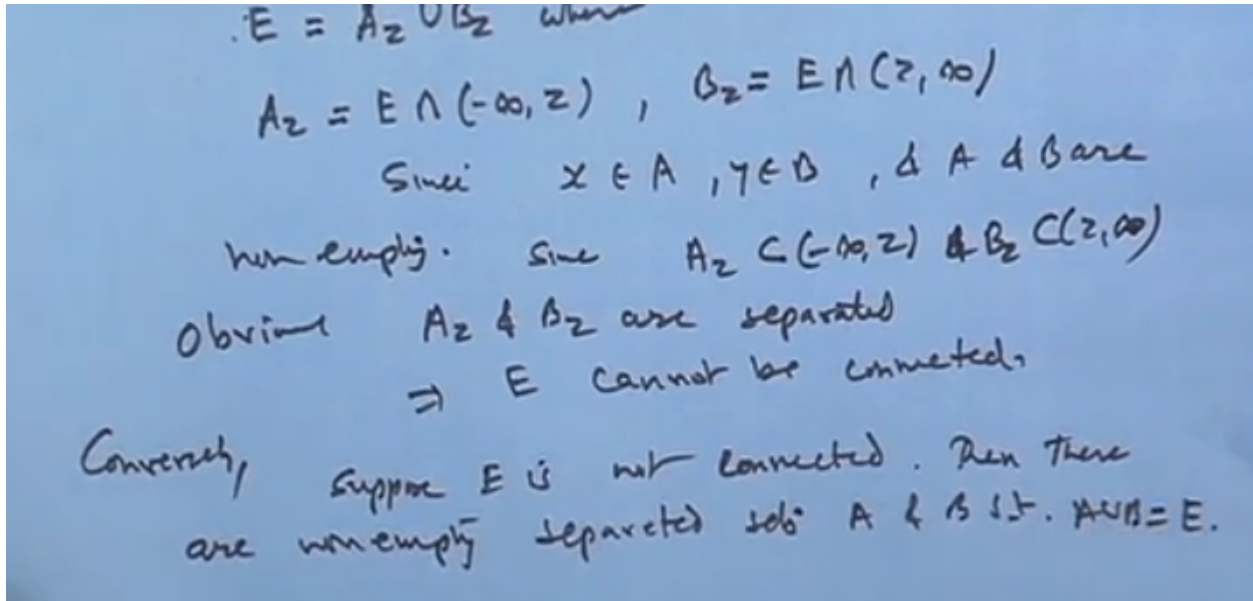 .E = A_z ∪ B_z where
A_z = E ∩ (-∞, z) , B_z = E ∩ (z, ∞)
Since x ∈ A , y ∈ B , & A & B are
non empty. Since A_z ⊂ (-∞, z) & B_z ⊂ (z, ∞)
Obvious A_z & B_z are separated
⇒ E cannot be connected.
Conversely, suppose E is not connected. Then there
are nonempty separated sets A & B s.t. A∪B = E.